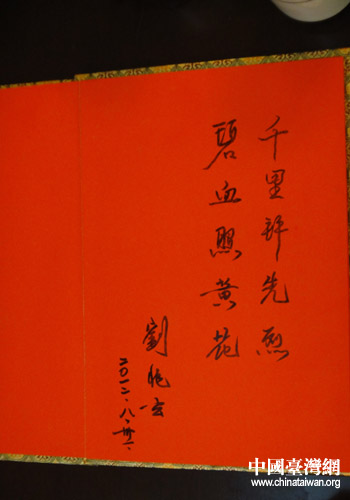 千里拜先烈
碧血照黃花
劉兆玄
二〇一二、八、卅一、
中國臺灣網
www.chinataiwan.org